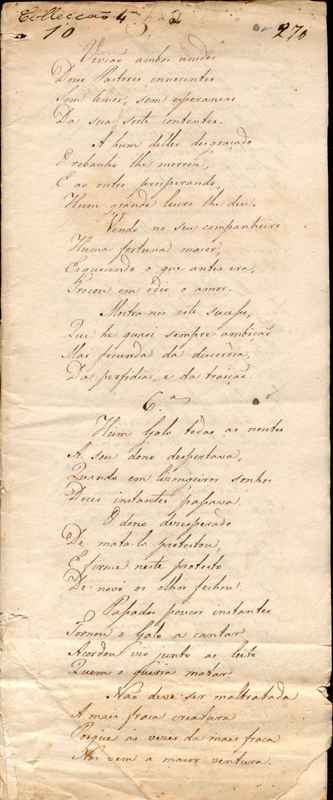 Collecção 4
10
270
Vivião ambos unidos
Dous Pastores innocentes
Sem temor, sem esperanças
Da sua sorte contentes.
A hum delles desgraçado
O rebanho lhe morria,
E ao outro prosperando,
Hum grande lucro lhe deu.
Vendo no seu companheiro
Huma fortuna maior,
Esquecendo o que antes era,
Trocou em odio o amor.
Mostra-nos este sucesso,
Que he quasi sempre ambição
Mãe fecunda da
Da perfidia, e da traição
6.a
Hum Galo todas as noutes
A seu dono despertava,
Quando em lizongeiros sonhos
Doces instantes passava.
O dono desesperado
De mata-lo protestou,
E firme neste protesto
De novo os olhos fechou
Passados poucos instantes
Tornou o Galo a cantar
Acordou veio junto ao leito
Quem o queria matar
Não deve ser maltratada
A mais fraca creatura
Porque ás vezes da mais fraca
Nos vem a maior ventura.